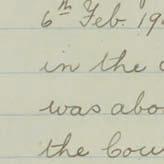 6th Feb. 19
in the
was abo
the Cou